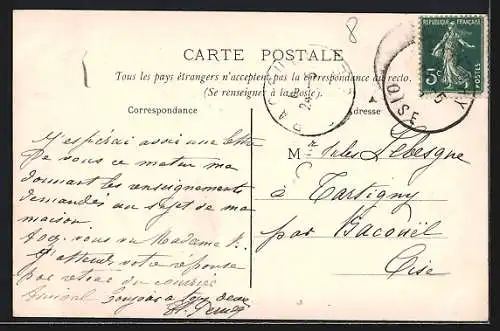 8
RÉPUBLIQUE FRANÇAISE
5c
POSTES
OISE
CARTE POSTALE
Tous les pays étrangers n'acceptent pas la correspondance au recto.
(Se renseigner à la Poste).
Correspondance
Adresse
J'espérai avoir une lettre
De vous ce matin me
donnant les renseignements
demandés au sujet de ma
maison
avez vous vu Madame
J'attends votre réponse
par retour du courrier
Amical bonjour à tous deux
M Jules Lebesgue
à Tartigny
par Bacouël
Oise